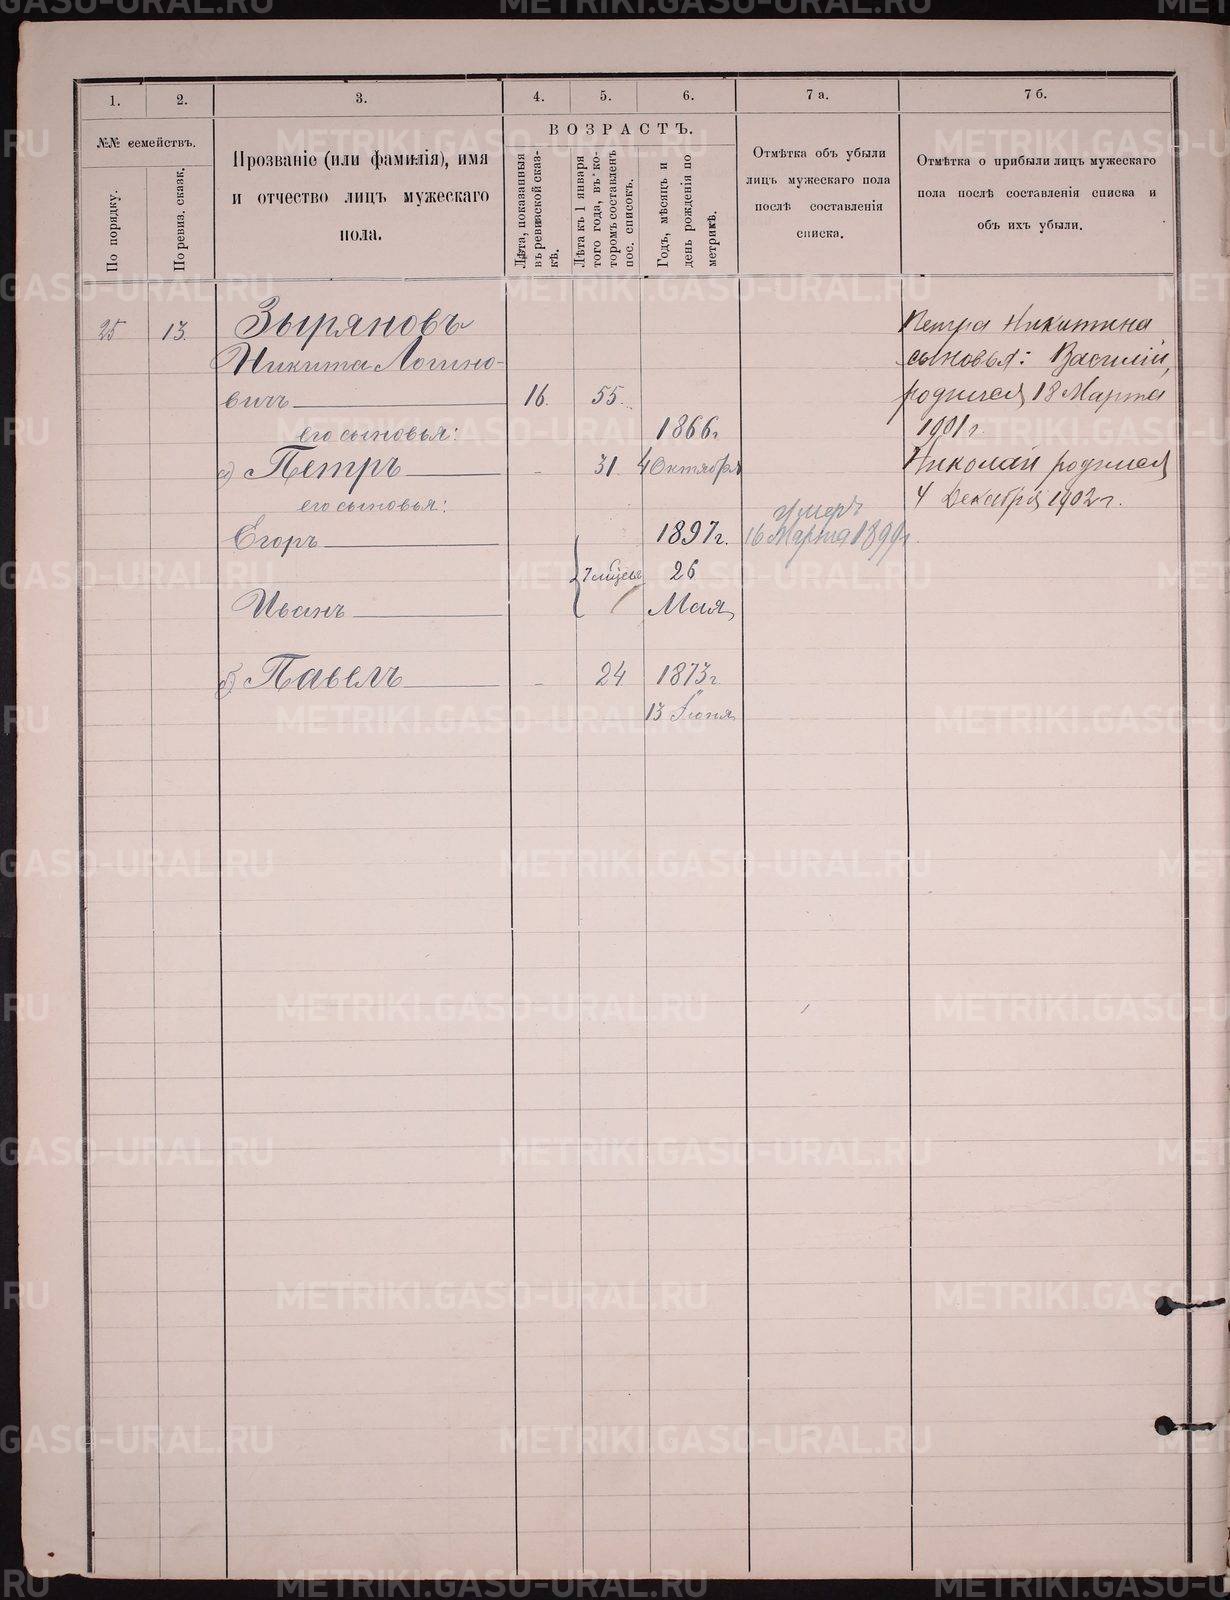 1.
2.
3.
4.
5.
6.
7 а.
7 б.
№№ семействъ.
По порядку.
По ревиз. сказк.
Прозваніе (или фамилія), имя
и отчество лицъ мужескаго
пола.
ВОЗРАСТЪ.
Лѣта, показанныя
въ ревизской сказ-
кѣ.
Лѣта къ 1 января
того года, въ ко-
торомъ составленъ
пос. списокъ.
Годъ, мѣсяцъ и
день рожденія по
метрикѣ.
Отмѣтка объ убыли
лицъ мужескаго пола
послѣ составленія
списка.
Отмѣтка о прибыли лицъ мужескаго
пола послѣ составленія списка и
объ ихъ убыли.
25 13. Зыряновъ
Никита Логино-
вичъ 16. 55.
его сыновья: 1866г
а) Петръ - 31 4 Октября
его сыновья:
Егоръ 1897г.
7 мѣсяц 26
Иванъ Мая
б) Павелъ - 24 1873г
13 Іюня
умеръ
16 Марта 1899г.
Петра Никитина
сыновья: Василій,
родился 18 Марта
1901г.
Николай родился
4 Декабря 1902г.
METRIKI.GASO-URAL.RU